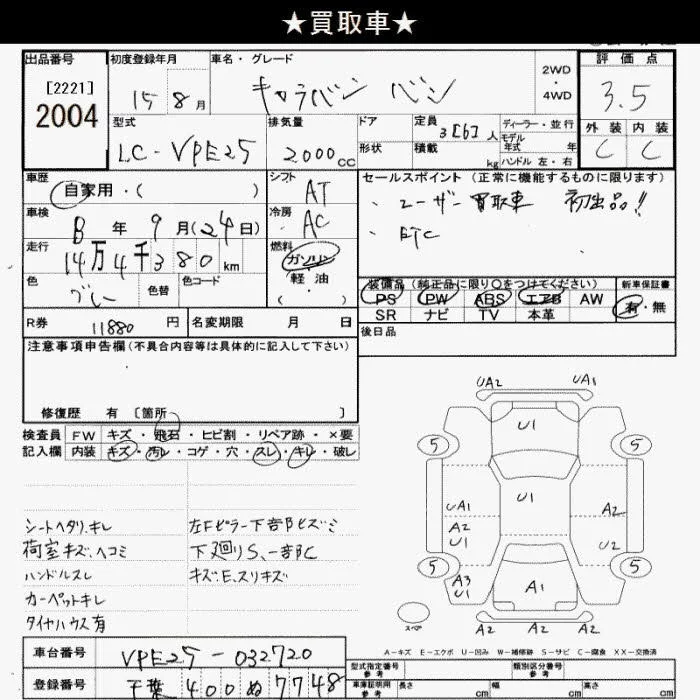 ★買取車★
出品番号
[2221]
2004
初度登録年月
15 8月
車名・グレード
キャラバン バン
2WD
・
4WD
評価点
3.5
外装 内装
C C
型式
LC-VPE25
排気量
2000cc
ドア
形状
定員
3[6]人
積載
kg
ディーラー・並行
モデル
年式 年
ハンドル 左・右
車歴
自家用・( )
シフト
AT
車検
年 9月(24日)
冷房
AC
走行
14万4千380km
燃料
ガソリン
軽・油
( )
色
グレー
色替
色コード
R券
11880円
名変期限 月 日
セールスポイント(正常に機能するものに限ります)
・ユーザー買取車 初出品!!
・ETC
装備品(純正品に限り○をつけてください)
PS PW ABS エアB AW
SR ナビ TV 本革
新車保証書
有・無
後日品
注意事項申告欄(不具合内容等は具体的に記入して下さい)
修復歴 有〔箇所 〕
検査員 FW キズ・飛石・ヒビ割・リペア跡・×要
記入欄 内装 キズ・汚レ・コゲ・穴・スレ・キレ・破レ
シートヘタリ、キレ
荷室キズ、ヘコミ
ハンドルスレ
カーペットキレ
タイヤハウス有
左Fピラー下
下廻りS、一部C
キズE、スリキズ
UA2 UA1
U1
5 5
U1
UA1
A2
U1
A2
U2
5 5
A3
U1
A1
スペア
A2 A2 A2
A-キズ E-エクボ U-凹み W-補修跡 S-サビ C-腐食 XX-交換済
車台番号
VPE25-032720
登録番号
千葉 400 ぬ 7748
型式指定番号
参考
類別区分番号
参考
車庫証明用
参考
長さ cm
幅 cm
高さ cm